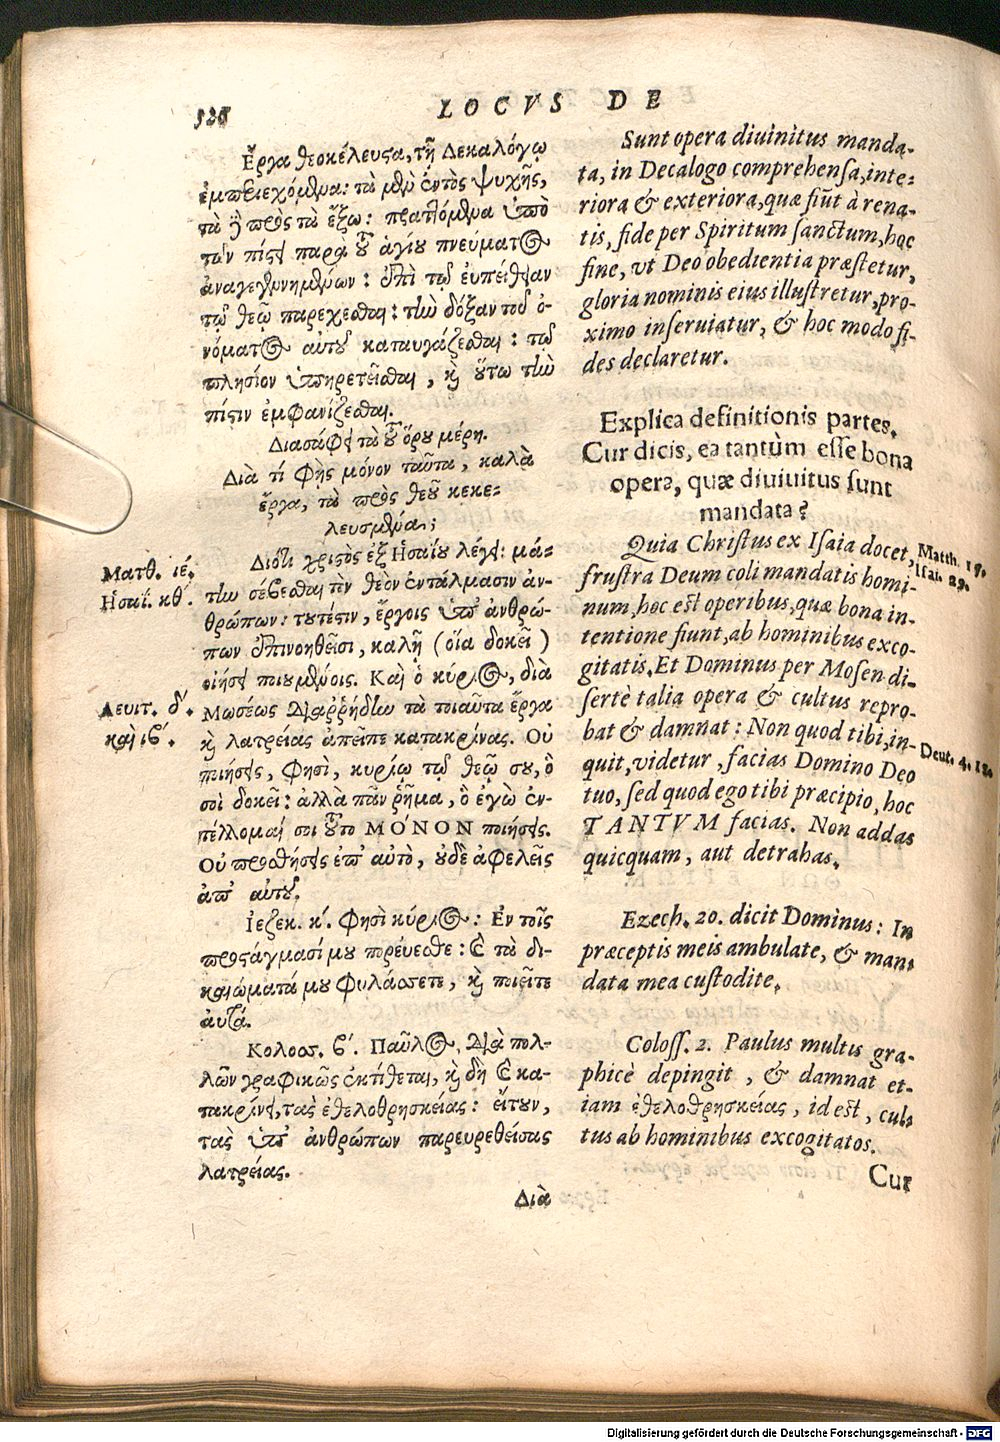 LOCVS DE
Ἔργα θεοκέλευστα, τῇ Δεκαλόγῳ
ἐμπεριεχόμενα: τὰ μὲν ἐντὸς ψυχῆς,
τὰ δὲ πρὸς τὰ ἔξω: πραττόμενα ὑπὸ
τῶν πίστει παρὰ τοῦ ἁγίου πνεύματος
ἀναγεγεννημένων: ἐπὶ τῷ εὐπείθειαν
τῷ θεῷ παρέχεσθαι: τὴν δόξαν τοῦ ὀ-
νόματος αὐτοῦ καταυγάζεσθαι: τῷ
πλησίον ὑπηρετεῖσθαι, καὶ οὕτω τὴν
πίστιν ἐμφανίζεσθαι.
Διασάφει τὰ τοῦ ὅρου μέρη.
Διὰ τί φῂς μόνον ταῦτα, καλὰ
ἔργα, τὰ πρὸς θεοῦ κεκε-
λευσμένα;
Ματθ. ιέ.
Ἡσαΐ. κθ΄.
Διότι χριστὸς ἐξ Ἡσαΐου λέγει: μά-
την σέβεσθαι τὸν θεὸν ἐντάλμασιν ἀν-
θρώπων: τουτέστιν, ἔργοις ὑπ' ἀνθρώ-
πων ἐπινοηθεῖσι, καλῇ (οἵα δοκεῖ)
οἰήσει ποιουμένοις. Καὶ ὁ κύριος, διὰ
Λευιτ. δ΄.
καὶ ιβ΄.
Μωσέως διαῤῥήδην τὰ τοιαῦτα ἔργα
καὶ λατρείας ἀπεῖπε κατακρίνας. Οὐ
ποιήσεις, φησὶ, κυρίῳ τῷ θεῷ σου, ὃ
σοὶ δοκεῖ: ἀλλὰ πᾶν ῥῆμα, ὃ ἐγὼ ἐν-
τέλλομαί σοι τοῦτο ΜΟ΄ΝΟΝ ποιήσεις.
Οὐ προσθήσεις ἐπ' αὐτὸ, οὐδὲ ἀφελεῖς
ἀπ' αὐτοῦ.
Ἰεζεκ. κ΄. φησὶ κύριος: Ἐν τοῖς
προστάγμασί μου πορεύεσθε: καὶ τὰ δι-
καιώματά μου φυλάσσετε, καὶ ποιεῖτε
αὐτά.
Κολοσσ. β΄. Παῦλος, διὰ πολ-
λῶν γραφικῶς ἐκτίθεται, καὶ δὴ καὶ κα-
τακρίνει, τὰς ἐθελοθρησκείας: εἴτουν,
τὰς ὑπ' ἀνθρώπων παρευρεθείσας
λατρείας.
Διὰ
Sunt opera diuinitus manda-
ta, in Decalogo comprehensa, inte-
riora & exteriora, quæ fiūt à rena-
tis, fide per Spiritum sanctum, hoc
fine, vt Deo obedientia præstetur,
gloria nominis eius illustretur, pro-
ximo inseruiatur, & hoc modo fi-
des declaretur.
Explica definitionis partes.
Cur dicis, ea tantùm esse bona
opera, quæ diuiuitus sunt
mandata?
Quia Christus ex Isaia docet,
Matth. 15.
Isai. 29.
frustra Deum coli mandatis homi-
num, hoc est operibus, quæ bona in-
tentione fiunt, ab hominibus exco-
gitatis. Et Dominus per Mosen di-
sertè talia opera & cultus repro-
bat & damnat: Non quod tibi, in-
Deut. 4. 12.
quit, videtur, facias Domino Deo
tuo, sed quod ego tibi præcipio, hoc
TANTVM facias. Non addas
quicquam, aut detrahas.
Ezech. 20. dicit Dominus: In
præceptis meis ambulate, & man-
data mea custodite.
Coloss. 2. Paulus multis gra-
phicè depingit, & damnat et-
iam ἐθελοθρησκείας, id est, cul-
tus ab hominibus excogitatos.
Cur
Digitalisierung gefördert durch die Deutsche Forschungsgemeinschaft - DFG